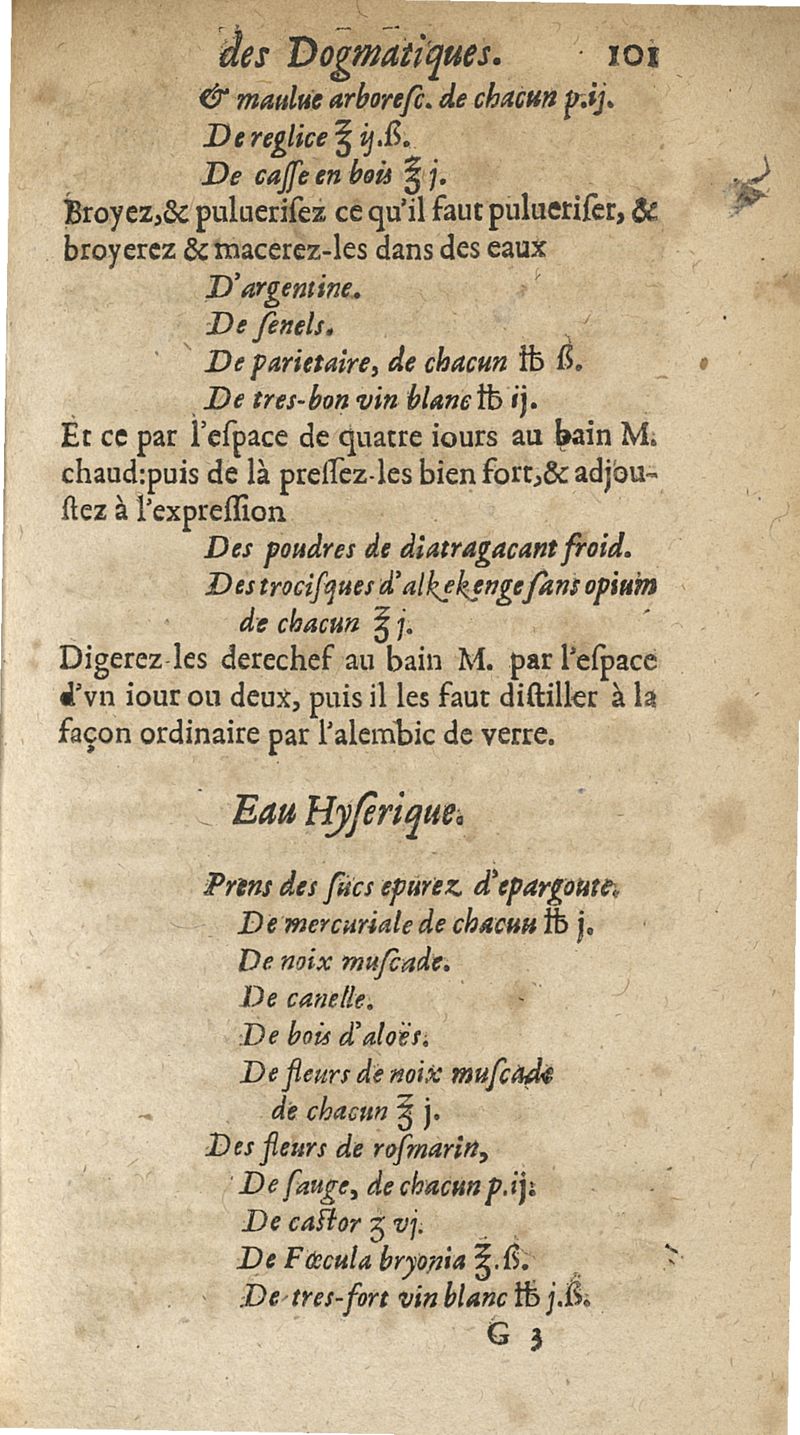 des Dogmatiques. 101
& maulue arboreſc. de chacun p.ij.
De reglice ℥ ij.ß.
De caſſe en bois ℥ j.
Broyez,& puluerifez ce qu'il faut puluerifer, &
broyerez & macerez-les dans des eaux
D'argentine.
De ſenels.
De parietaire, de chacun ℔ ß.
De tres-bon vin blanc ℔ ij.
Et ce par l'eſpace de quatre iours au bain M.
chaud:puis de là preſſez-les bien fort,& adjou-
ſtez à l'expreſſion
Des poudres de diatragacant froid.
Des trociſques d'alkekenge ſans opium
de chacun ℥ j.
Digerez-les derechef au bain M. par l'eſpace
d'vn iour ou deux, puis il les faut diſtiller à la
façon ordinaire par l'alembic de verre.
Eau Hyſerique.
Prens des ſucs epurez d'epargoute.
De mercuriale de chacuu ℔ j.
De noix muſcade.
De canelle.
De bois d'aloës.
De fleurs de noix muſcade
de chacun ℥ j.
Des fleurs de roſmarin,
De ſauge, de chacun p.ij:
De caſtor ʒ vj.
De Fœcula bryonia ℥.ß.
De tres-fort vin blanc ℔ j.ß.
G 3